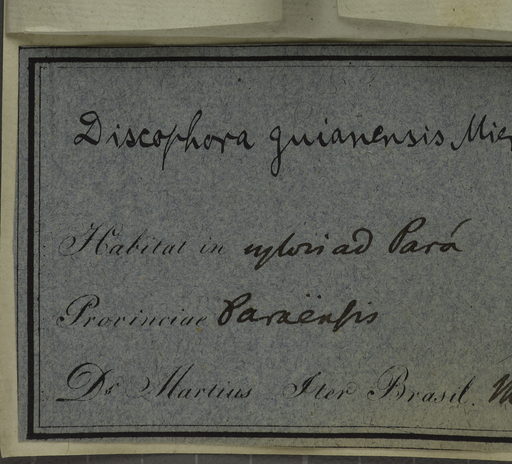 Discophora guianensis Mier
Habitat in sylvis ad Pará
Provinciae Paraënsis
Dr Martius Iter Brasil.